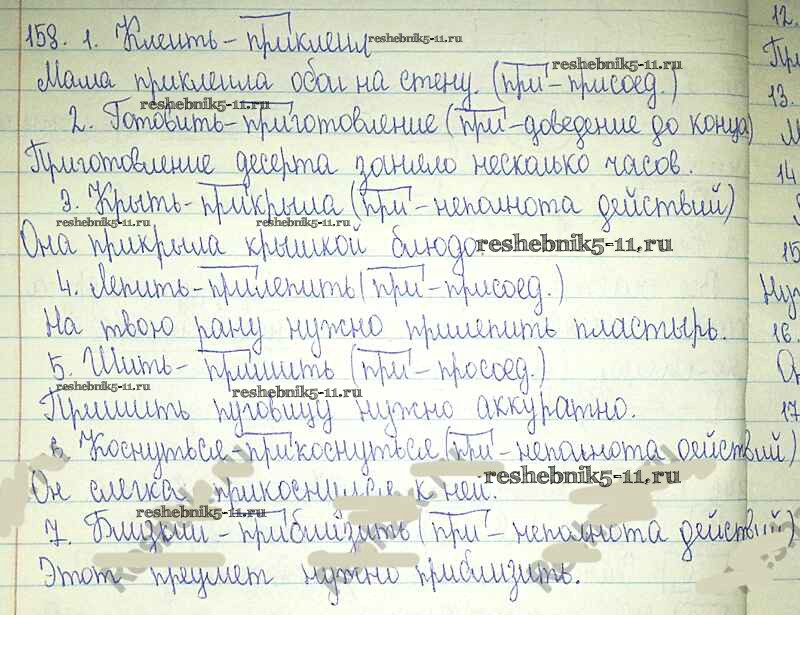 158. 1. Клеить - приклеил reshebnik5-11.ru 12.
Мама приклеила обои на стену. (при - присоед.) reshebnik5-11.ru
reshebnik5-11.ru 13.
2. Готовить - приготовление (при - доведение до конца)
Приготовление десерта заняло несколько часов. 14
3. Крыть - прикрыла (при - неполнота действий)
reshebnik5-11.ru reshebnik5-11.ru
Она прикрыла крышкой блюдо. reshebnik5-11.ru 15
4. Лепить - прилепить (при - присоед.)
На твою рану нужно прилепить пластырь. 16.
5. Шить - пришить (при - просоед.)
reshebnik5-11.ru reshebnik5-11.ru
Пришить пуговицу нужно аккуратно. 17
6. Коснуться - прикоснуться (при - неполнота действий)
Он слегка прикоснулся к ней. reshebnik5-11.ru
reshebnik5-11.ru
7. Близкий - приблизить (при - неполнота действий)
Этот предмет нужно приблизить.